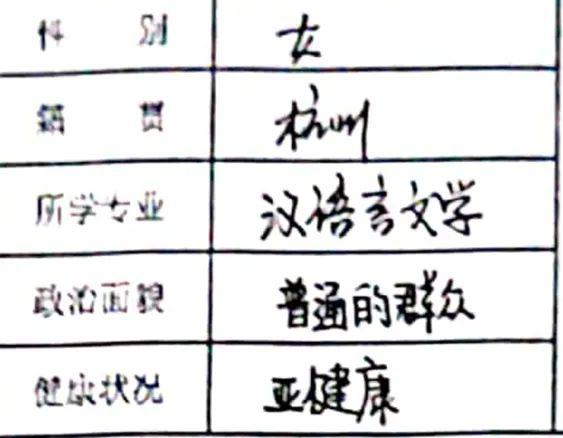 性 别 女
籍 贯 杭州
所学专业 汉语言文学
政治面貌 普通的群众
健康状况 亚健康